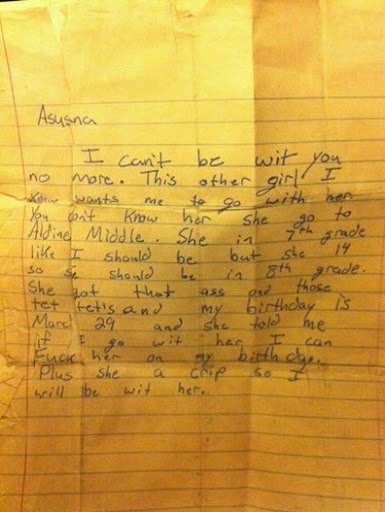 Asusana
I can't be wit you
no more. This other girl I
know wants me to go with her.
You don't know her she go to
Aldine Middle. She in 7th grade
like I should be but she 14
so se should be in 8th grade.
my birthday is
March 29 and she told me
if I go wit her I can
Plus she a crip so I
will be wit her.